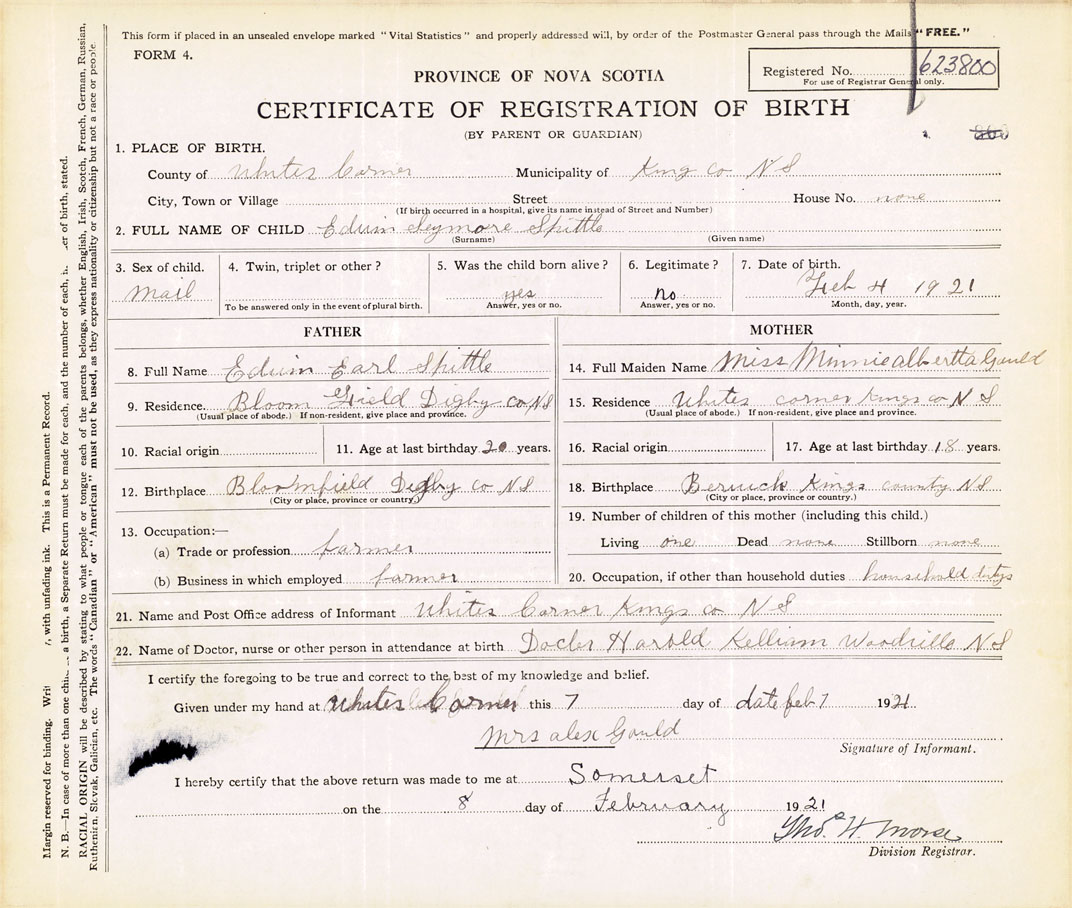 This form if placed in an unsealed envelope marked "Vital Statistics" and properly addressed will, by order of the Postmaster General pass through the Mails "FREE."
FORM 4.
PROVINCE OF NOVA SCOTIA
Registered No. 623800
For use of Registrar General only.
CERTIFICATE OF REGISTRATION OF BIRTH
(BY PARENT OR GUARDIAN)
1. PLACE OF BIRTH.
County of Whites Corner Municipality of King co N S
City, Town or Village Street House No. none
(If birth occurred in a hospital, give its name instead of Street and Number)
2. FULL NAME OF CHILD Edwin Seymore Spittle
(Surname) (Given name)
3. Sex of child. 4. Twin, triplet or other? 5. Was the child born alive? 6. Legitimate? 7. Date of birth.
Mail yes no Feb 4 1921
To be answered only in the event of plural birth. Answer, yes or no. Answer, yes or no. Month, day, year.
FATHER
8. Full Name Edwin Earl Spittle
9. Residence. Bloom Field Digby co N S
(Usual place of abode.) If non-resident, give place and province.
10. Racial origin 11. Age at last birthday 20 years.
12. Birthplace Bloomfield Digby co N S
(City or place, province or country.)
13. Occupation:—
(a) Trade or profession farmer
(b) Business in which employed farmer
MOTHER
14. Full Maiden Name Miss Minniealbertta Gould
15. Residence Whites corner Kings co N S
(Usual place of abode.) If non-resident, give place and province.
16. Racial origin 17. Age at last birthday 18 years.
18. Birthplace Berwick Kings county N S
(City or place, province or country.)
19. Number of children of this mother (including this child.)
Living one Dead none Stillborn none
20. Occupation, if other than household duties household dutys
21. Name and Post Office address of Informant Whites Corner Kings co N S
22. Name of Doctor, nurse or other person in attendance at birth Docter Harold Killiam Woodville N S
I certify the foregoing to be true and correct to the best of my knowledge and belief.
Given under my hand at Whites Corner this 7 day of date feb 7 1921.
Mrs alex Gould
Signature of Informant.
I hereby certify that the above return was made to me at Somerset
on the 8 day of February 1921
Thos. H. Morse
Division Registrar.
Margin reserved for binding. Wri , with unfading ink. This is a Permanent Record.
N. B.—In case of more than one a birth, a Separate Return must be made for each, and the number of each, of birth, stated.
RACIAL ORIGIN will be described by stating to what people or tongue each of the parents belongs, whether English, Irish, Scotch, French, German, Russian,
Ruthenian, Slovak, Galician, etc. The words "Canadian" or "American" must not be used, as they express nationality or citizenship but not a race or people.